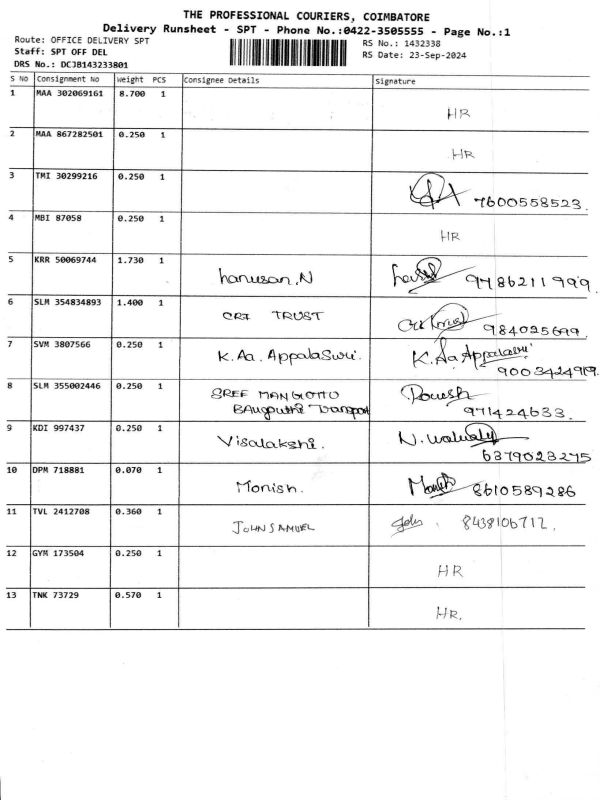 THE PROFESSIONAL COURIERS, COIMBATORE
Delivery Runsheet - SPT - Phone No.:0422-3505555 - Page No.:1
Route: OFFICE DELIVERY SPT RS No.: 1432338
Staff: SPT OFF DEL RS Date: 23-Sep-2024
DRS No.: DCJB143233801
S No Consignment No Weight PCS Consignee Details Signature
1 MAA 302069161 8.700 1 HR
2 MAA 867282501 0.250 1 HR
3 TMI 30299216 0.250 1 7600558523.
4 MBI 87058 0.250 1 HR
5 KRR 50069744 1.730 1
hanusan.N 9786211999.
6 SLM 354834893 1.400 1
CRI TRUST 984025699.
7 SVM 3807566 0.250 1
K.Aa. AppalaSwri. K.Aa Appalaswri
9003424919.
8 SLM 355002446 0.250 1
SREE
Transport 971424633.
9 KDI 997437 0.250 1
Visalakshi.
6379023275
10 DPM 718881 0.070 1
Monish. 8610589286
11 TVL 2412708 0.360 1
JOHN SAMUEL John. 8438106712.
12 GYM 173504 0.250 1
HR
13 TNK 73729 0.570 1
HR.